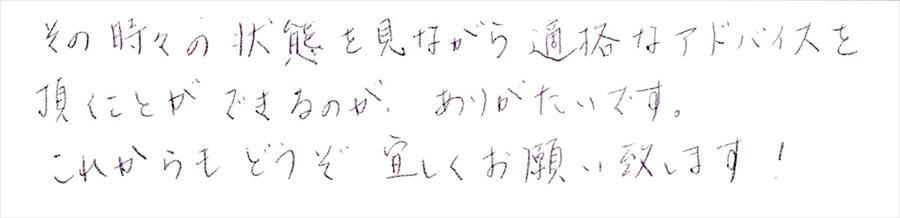 その時々の状態を見ながら適格なアドバイスを
頂くことができるのが、ありがたいです。
これからもどうぞ宜しくお願い致します!